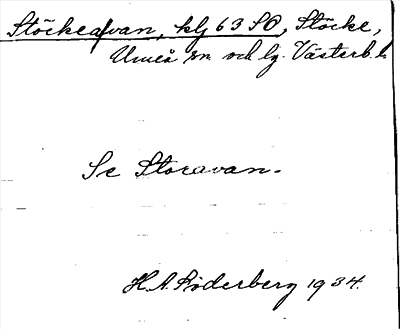 Stöckeavan, klj 63 SO, Stöcke,
Umeå sn och lg. Västerb. l.
Se Storavan.
H.A. Söderberg 1934.